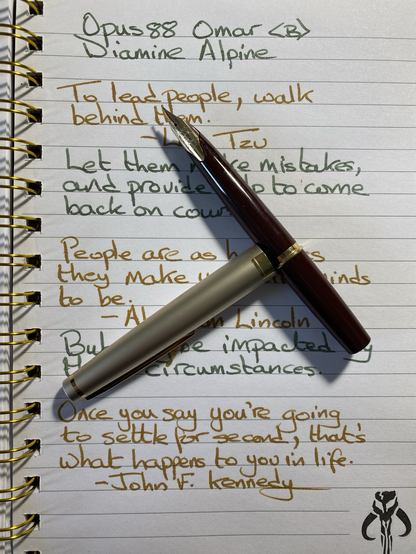 Opus 88 Omar <B>
Diamine Alpine
To lead people, walk
behind them.
- Tzu
Let them make mistakes,
and provide to come
back on
People are as
they make minds
to be.
- Lincoln
But be impacted by
circumstances.
Once you say you're going
to settle for second, that's
what happens to you in life.
- John F. Kennedy